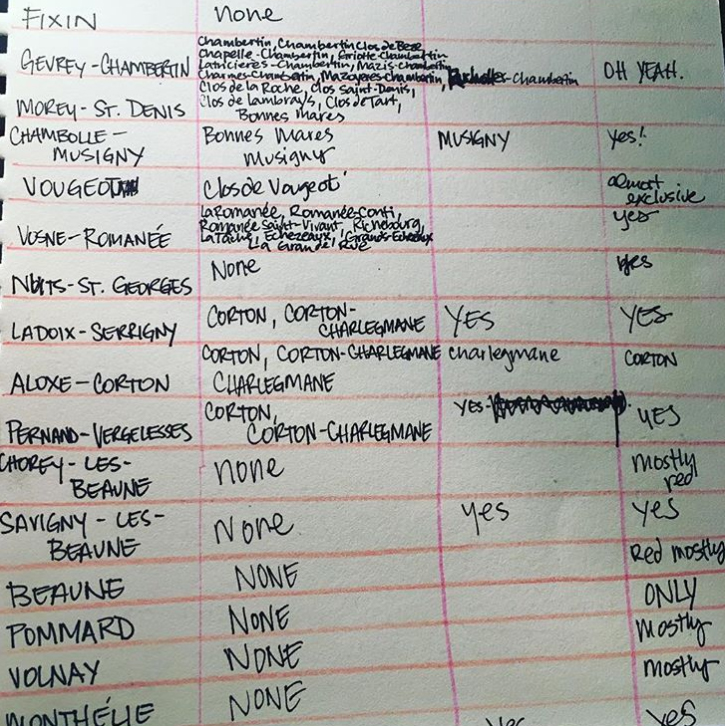 FIXIN
none
GEVREY-CHAMBERTIN
Chambertin, Chambertin Clos de Beze
Chapelle-Chambertin, Griotte-Chambertin
Latricieres-Chambertin, Mazis-Chambertin
Charmes-Chambertin, Mazoyeres-Chambertin, -Chambertin
OH YEAH.
MOREY-ST. DENIS
Clos de la Roche, Clos Saint-Denis,
Clos de Lambrays, Clos de Tart,
Bonnes Mares
CHAMBOLLE-
MUSIGNY
Bonnes Mares
Musigny
MUSIGNY
yes!
VOUGEOT
Clos de Vougeot
almost
exclusive
VOSNE-ROMANÉE
La Romanée, Romanée-Conti,
Romanée Saint-Vivant, Richebourg,
La Tâche, Echezeaux, Grands-Echezeaux
La Grande Rue
yes
NUITS-ST. GEORGES
None
yes
LADOIX-SERRIGNY
CORTON, CORTON-
CHARLEGMANE
YES
YES
ALOXE-CORTON
CORTON, CORTON-CHARLEGMANE
CHARLEGMANE
charlegmane
CORTON
PERNAND-VERGELESSES
CORTON,
CORTON-CHARLEGMANE
yes-
YES
CHOREY-LES-
BEAUNE
none
mostly
red
SAVIGNY-LES-
BEAUNE
None
yes
YES
BEAUNE
NONE
Red mostly
POMMARD
NONE
ONLY
VOLNAY
NONE
mostly
MONTHÉLIE
NONE
mostly
yes
yes